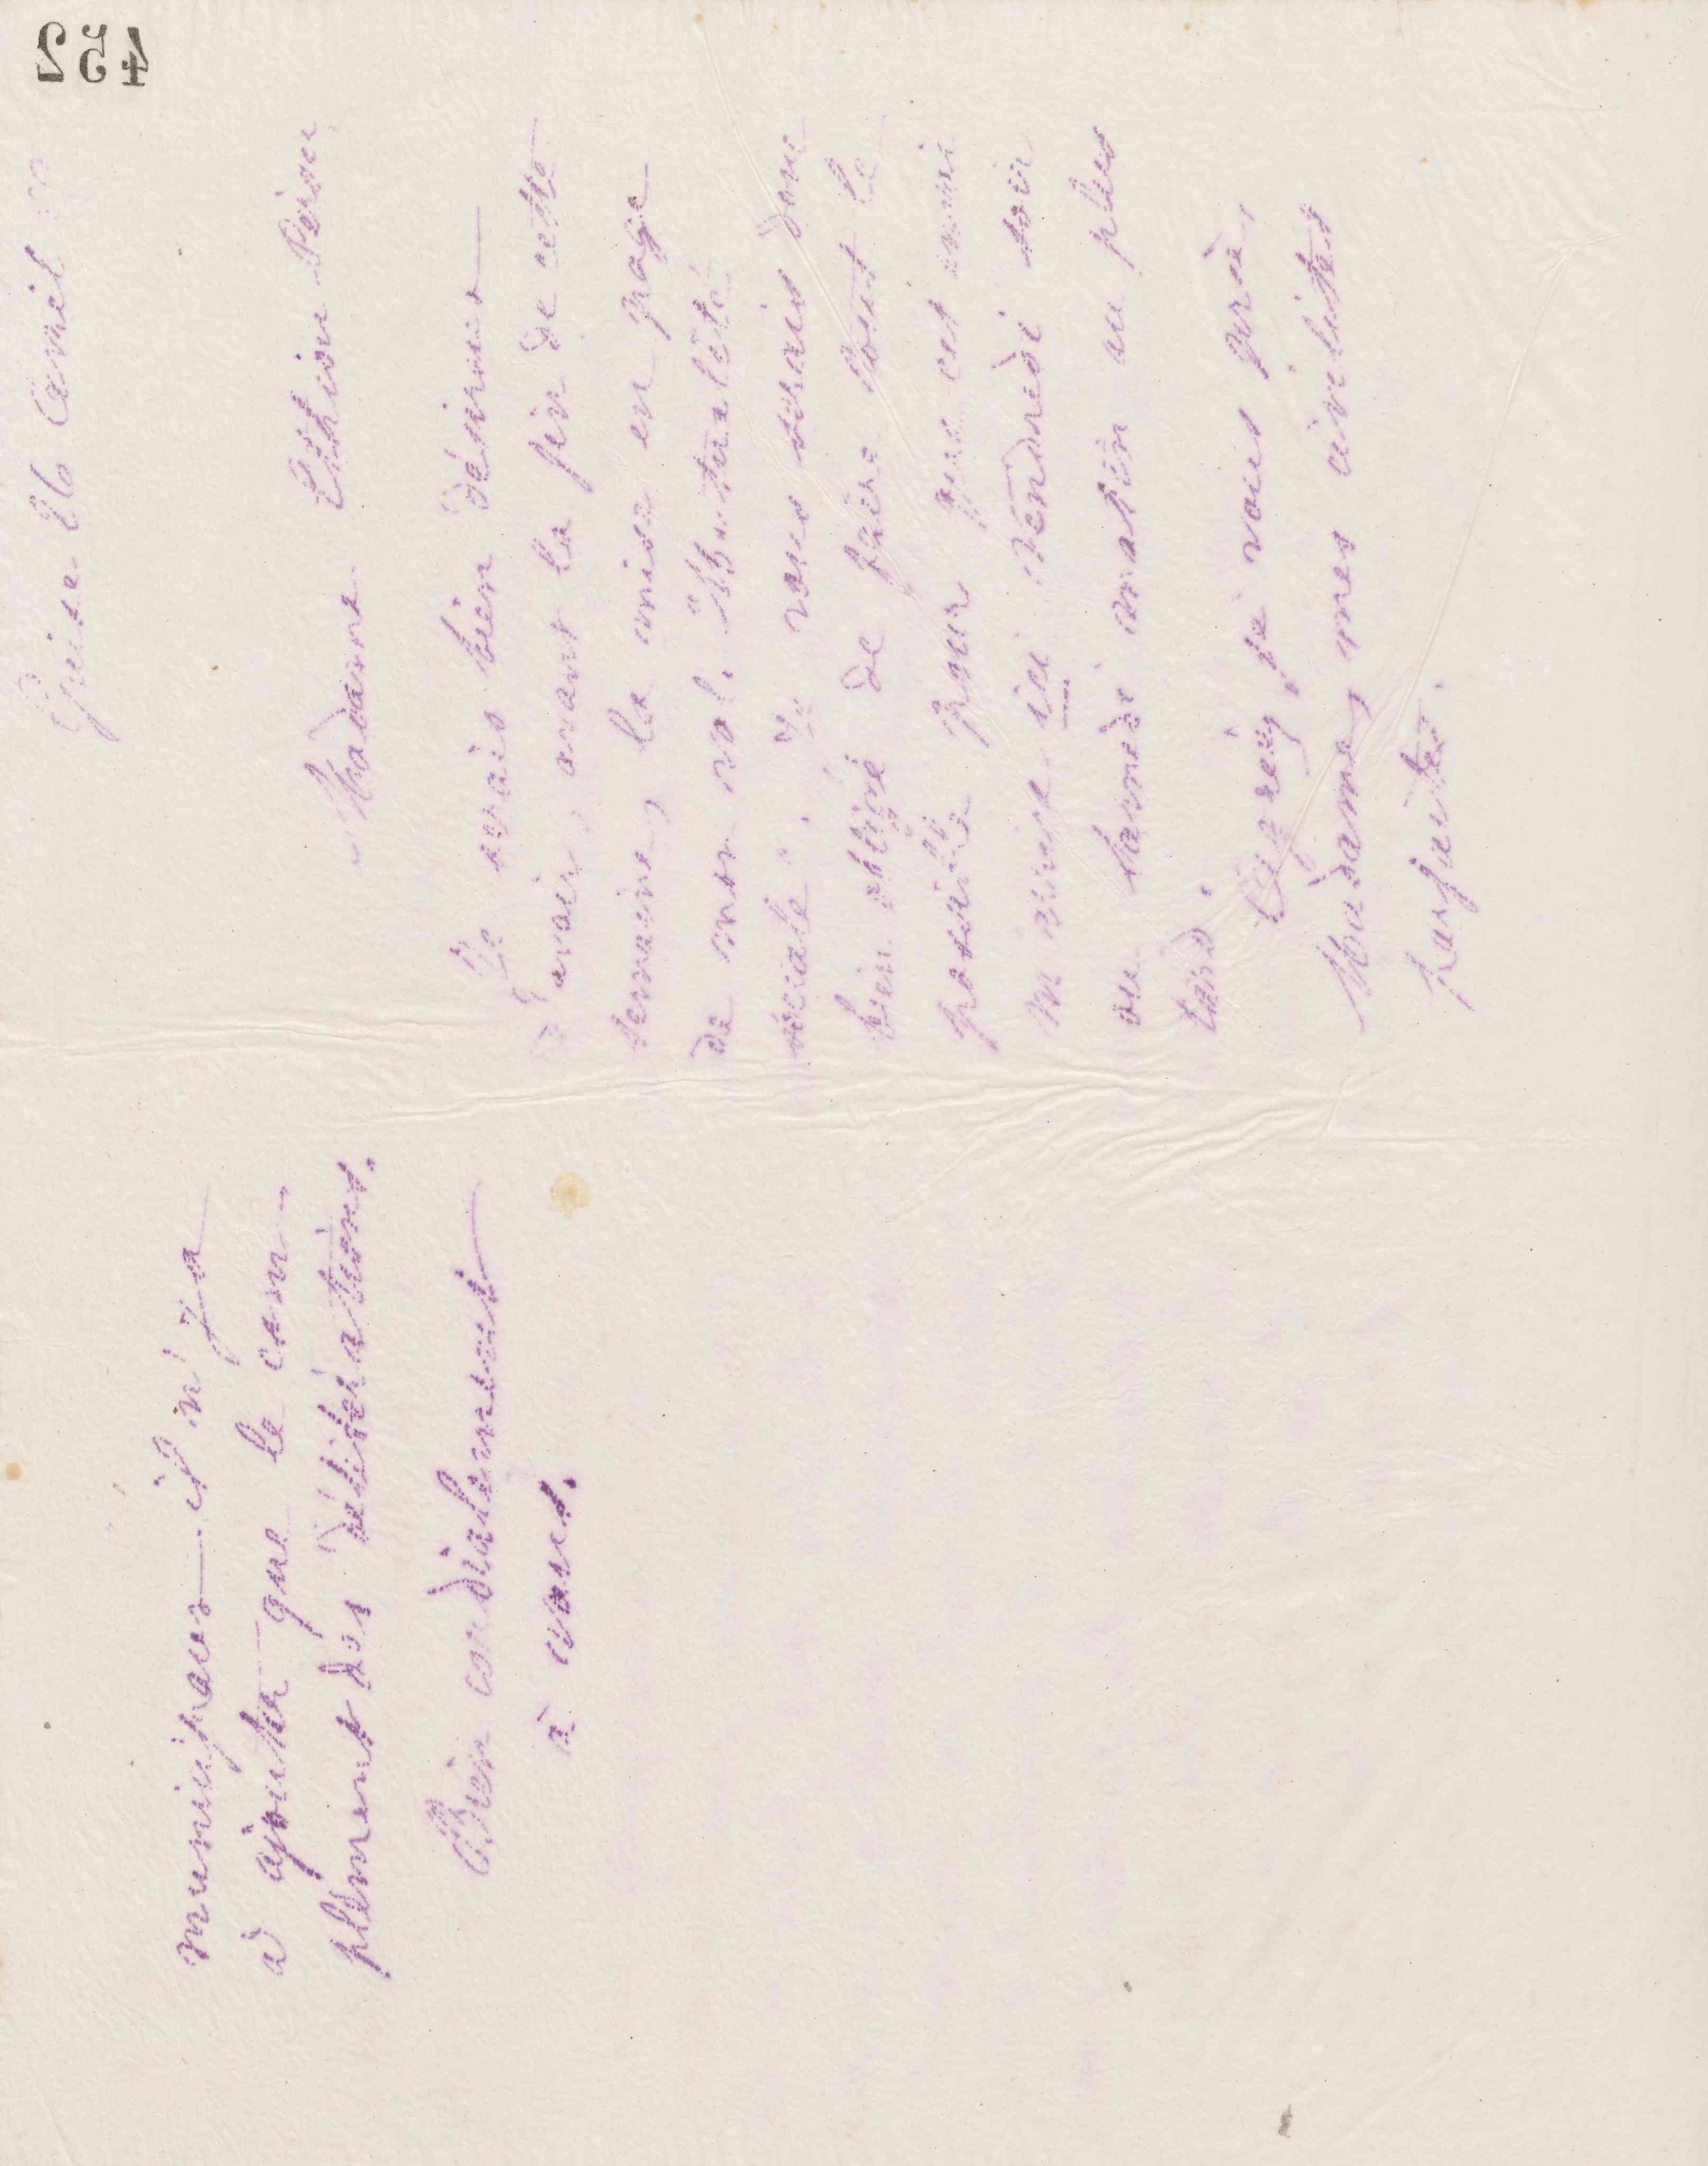 452
municipaux — il n'y a
à ajouter que le com-
plément des délibérations.
Bien cordialement
à vous.
Guise 26 Avril
Madame
Je serais bien désireux
d'avoir, avant la fin de cette
semaine, la mise en page
de mon vol. "Mutualité
sociale". Je vous serais donc
bien obligé de faire tout le
possible pour que cet envoi
m'arrive ici vendredi soir
ou samedi matin au plus
tard.
Agréez, je vous prie,
Madame, mes civilités
parfaites.